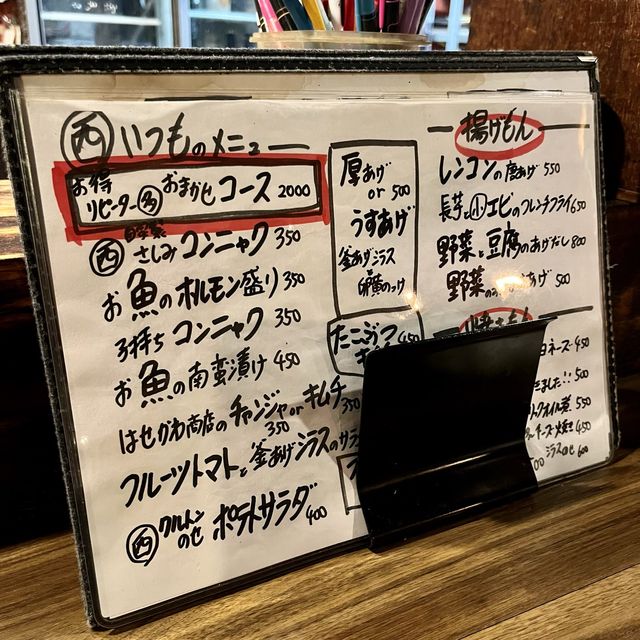 西 いつものメニュー
お得
リピーター多 おまかせコース 2000
西 さしみコンニャク 350
お魚のホルモン盛り 350
子持ちコンニャク 350
お魚の南蛮漬け 450
はせがわ商店のチャンジャorキムチ
350 350
フルーツトマトと釜あげシラスのサラ
西 クルトンのせ ポテトサラダ 400
厚あげ
or 500
うすあげ
釜あげシラス
卵黄のっけ
たこぶつ 450
揚げもん
レンコンの唐あげ 550
長芋と小エビのフレンチフライ 650
野菜と豆腐のあげだし 800
野菜の あげ 500
ヨネーズ 450
きました!! 500
オイル煮 550
チーズ焼き 450
シラスのせ 600